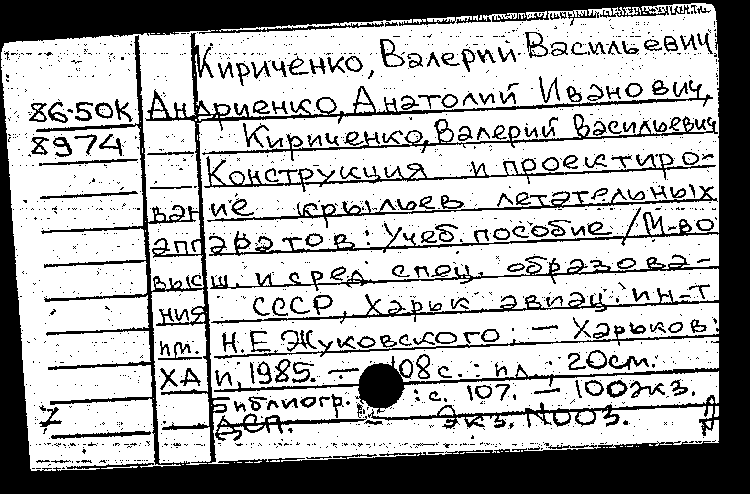 Кириченко, Валерий Васильевич
86-50К Андриенко, Анатолий Иванович,
8974 Кириченко, Валерий Васильевич
Конструкция и проектиро-
вание крыльев летательных
аппаратов: Учеб. пособие / М-во
высш. и сред. спец. образова-
ния СССР, Харьк. авиац. ин-т
им. Н.Е. Жуковского. — Харьков:
ХАИ, 1985. — 108 с. : ил. ; 20см.
Библиогр. : с. 107. — 100экз.
7 ДСП. — Экз. N003. Д